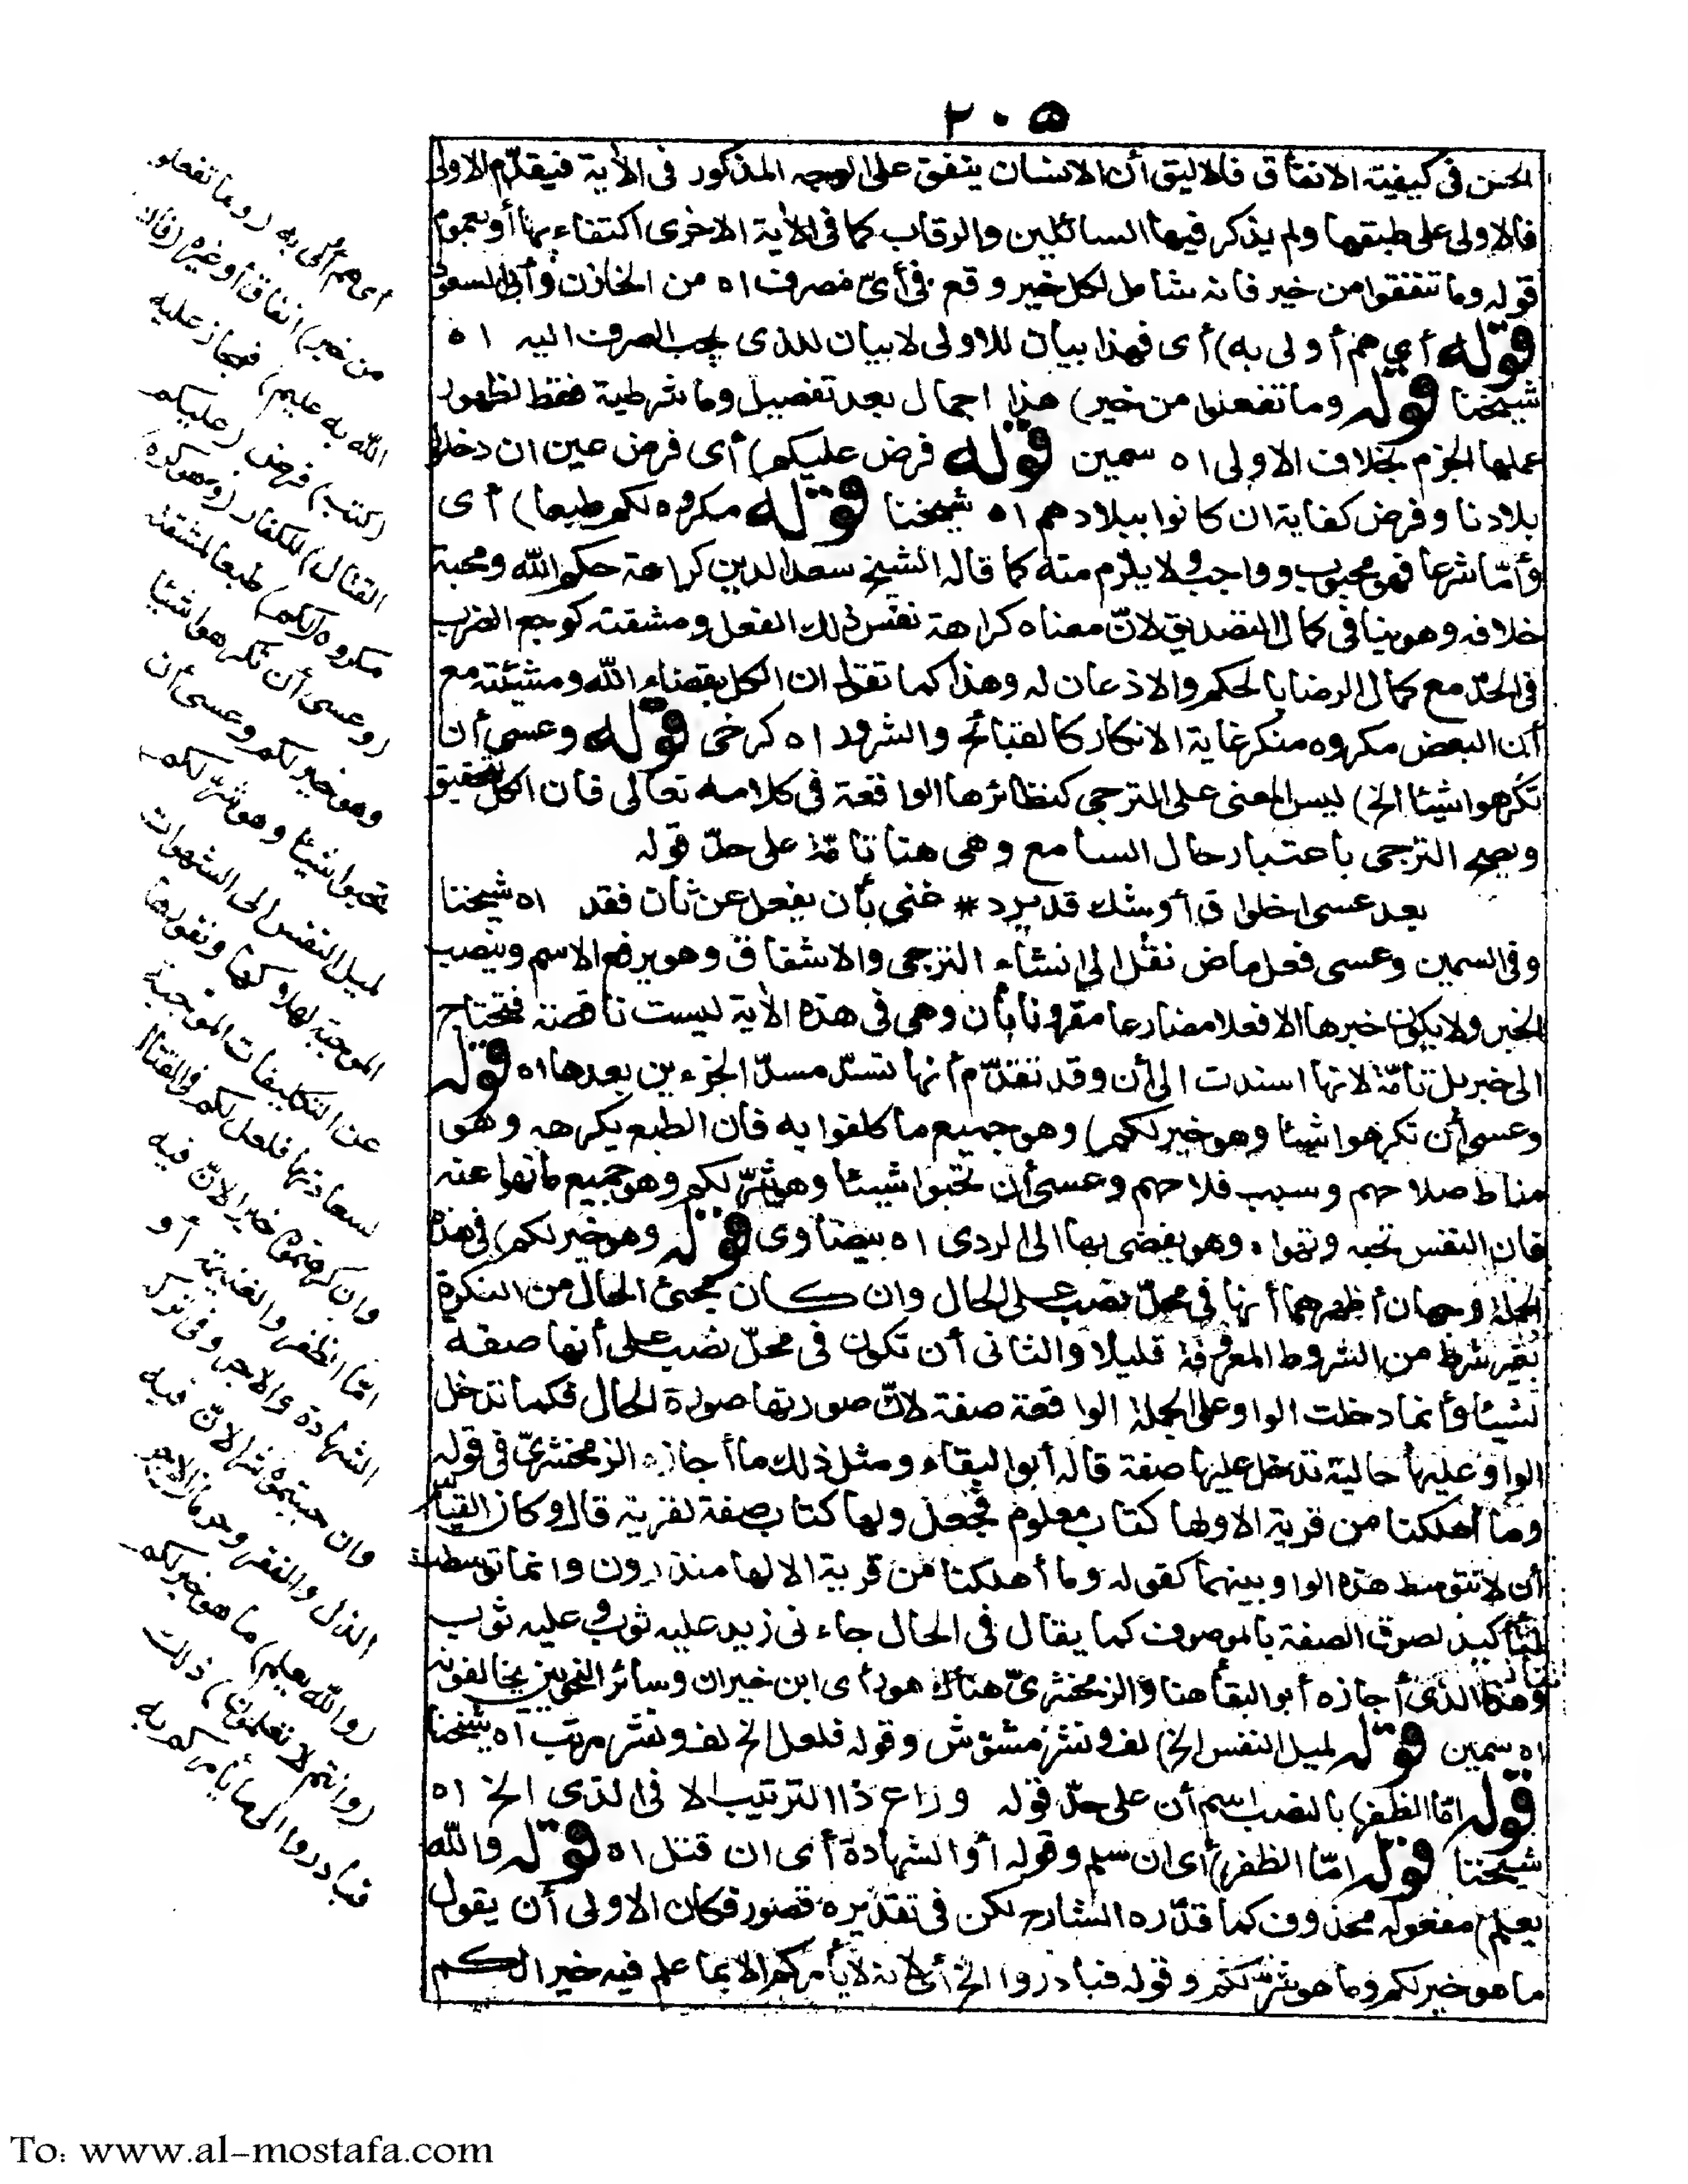 ٢٠٥
الحسن فى كيفية الانفاق فالاليق أن الانسان ينفق على الوجه المذكور فى الآية فيقدّم الاولى
فالاولى على طبقها ولم يذكر فيها السائلين والرقاب كما فى الآية الاخرى اكتفاء بها أو بعموم
قوله وما تنفقوا من خير فانه شامل لكل خير وقع فى أىّ مصرف اه من الخازن وأبى السعود
قوله أى هم أولى به) أى فهذا بيان للاولى لا بيان للذى يجب الصرف اليه اه
شيخنا قوله وما تفعلوا من خير) هذا اجمال بعد تفصيل وما شرطية فقط لظهور
عملها الجزم بخلاف الاولى اه سمين قوله فرض عليكم) أى فرض عين ان دخلوا
بلادنا وفرض كفاية ان كانوا ببلادهم اه شيخنا قوله مكروه لكم طبعا) أى
وأمّا شرعا فهو محبوب وواجب ولا يلزم منه كما قاله الشيخ سعد الدين كراهة حكم الله ومحبة
خلافه وهو ينافى كمال التصديق لانّ معناه كراهة نفس ذلك الفعل ومشقته كوجع الضرب
فى الحدّ مع كمال الرضا بالحكم والاذعان له وهذا كما تقول ان الكل بقضاء الله ومشيئته مع
أن البعض مكروه منكر غاية الانكار كالقبائح والشرور اه كرخى قوله وعسى أن
تكرهوا شيئا الخ) ليس المعنى على الترجى كنظائرها الواقعة فى كلامه تعالى فان الكل للتحقيق
ويصح الترجى باعتبار حال السامع وهى هنا تامّة على حدّ قوله
بعد عسى اخلولق أوشك قد يرد * غنى بأن يفعل عن ثان فقد اه شيخنا
وفى السمين وعسى فعل ماض نقل الى انشاء الترجى والاشفاق وهو يرفع الاسم وينصب
الخبر ولا يكون خبرها الا فعلا مضارعا مقرونا بأن وهى فى هذه الآية ليست ناقصة فتحتاج
الى خبر بل تامّة لانها اسندت الى أن وقد تقدّم أنها تسدّ مسدّ الجزءين بعدها اه قوله
وعسى أن تكرهوا شيئا وهو خير لكم) وهو جميع ما كلفوا به فان الطبع يكرهه وهو
مناط صلاحهم وسبب فلاحهم وعسى أن تحبوا شيئا وهو شرّ لكم وهو جميع ما نهوا عنه
فان النفس تحبه وتهواه وهو يفضى بها الى الردى اه بيضاوى قوله وهو خير لكم) فى هذه
الجملة وجهان أظهرهما أنها فى محلّ نصب على الحال وان كان مجىء الحال من النكرة
بغير شرط من الشروط المعروفة قليلا والثانى أن تكون فى محلّ نصب على أنها صفة
لشيئا وانما دخلت الواو على الجملة الواقعة صفة لانّ صورتها صورة الحال فكما تدخل
الواو عليها حالية تدخل عليها صفة قاله أبو البقاء ومثل ذلك ما أجازه الزمخشرىّ فى قوله
وما أهلكنا من قرية الا ولها كتاب معلوم فجعل ولها كتاب صفة لقرية قال وكان القياس
أن لا تتوسط هذه الواو بينهما كقوله وما أهلكنا من قرية الا لها منذرون وانما توسطت
لتأكيد لصوق الصفة بالموصوف كما يقال فى الحال جاءنى زيد عليه ثوب وعليه ثوب
وهذا الذى أجازه أبو البقاء هنا والزمخشرىّ هناك هو رأى ابن خيران وسائر النحويين يخالفونه
اه سمين قوله لميل النفس الخ) لف ونشر مشوّش وقوله فلعل الخ لف ونشر مرتب اه شيخنا
قوله امّا الظفر) بالنصب اسم أن على حدّ قوله وراع ذا الترتيب الا فى الذى الخ اه
شيخنا قوله امّا الظفر) أى ان سلم وقوله أو الشهادة أى ان قتل اه قوله والله
يعلم) مفعوله محذوف كما قدّره الشارح لكن فى تقديره قصور فكان الاولى أن يقول
ما هو خير لكم وما هو شرّ لكم وقوله فبادروا الخ أى لانه لا يأمركم الا بما علم فيه خيرا لكم
أى هم أولى به (وما تفعلوا
من خير) انفاق أو غيره (فان
الله به عليم) فمجاز عليه
(كتب) فرض (عليكم
القتال) للكفار (وهو كره)
مكروه (لكم) طبعا لمشقته
(وعسى أن تكرهوا شيئا
وهو خير لكم وعسى أن
تحبوا شيئا وهو شرّ لكم)
لميل النفس الى الشهوات
الموجبة لهلاكها ونفورها
عن التكليفات الموجبة
لسعادتها فلعل لكم فى القتال
وان كرهتموه خيرا لانّ فيه
امّا الظفر والغنيمة أو
الشهادة والاجر وفى تركه
وان حببتموه شرا لانّ فيه
الذل والفقر وحرمان الاجر
(والله يعلم) ما هو خير لكم
(وانتم لا تعلمون) ذلك
فبادروا الى ما يأمركم به
To: www.al-mostafa.com